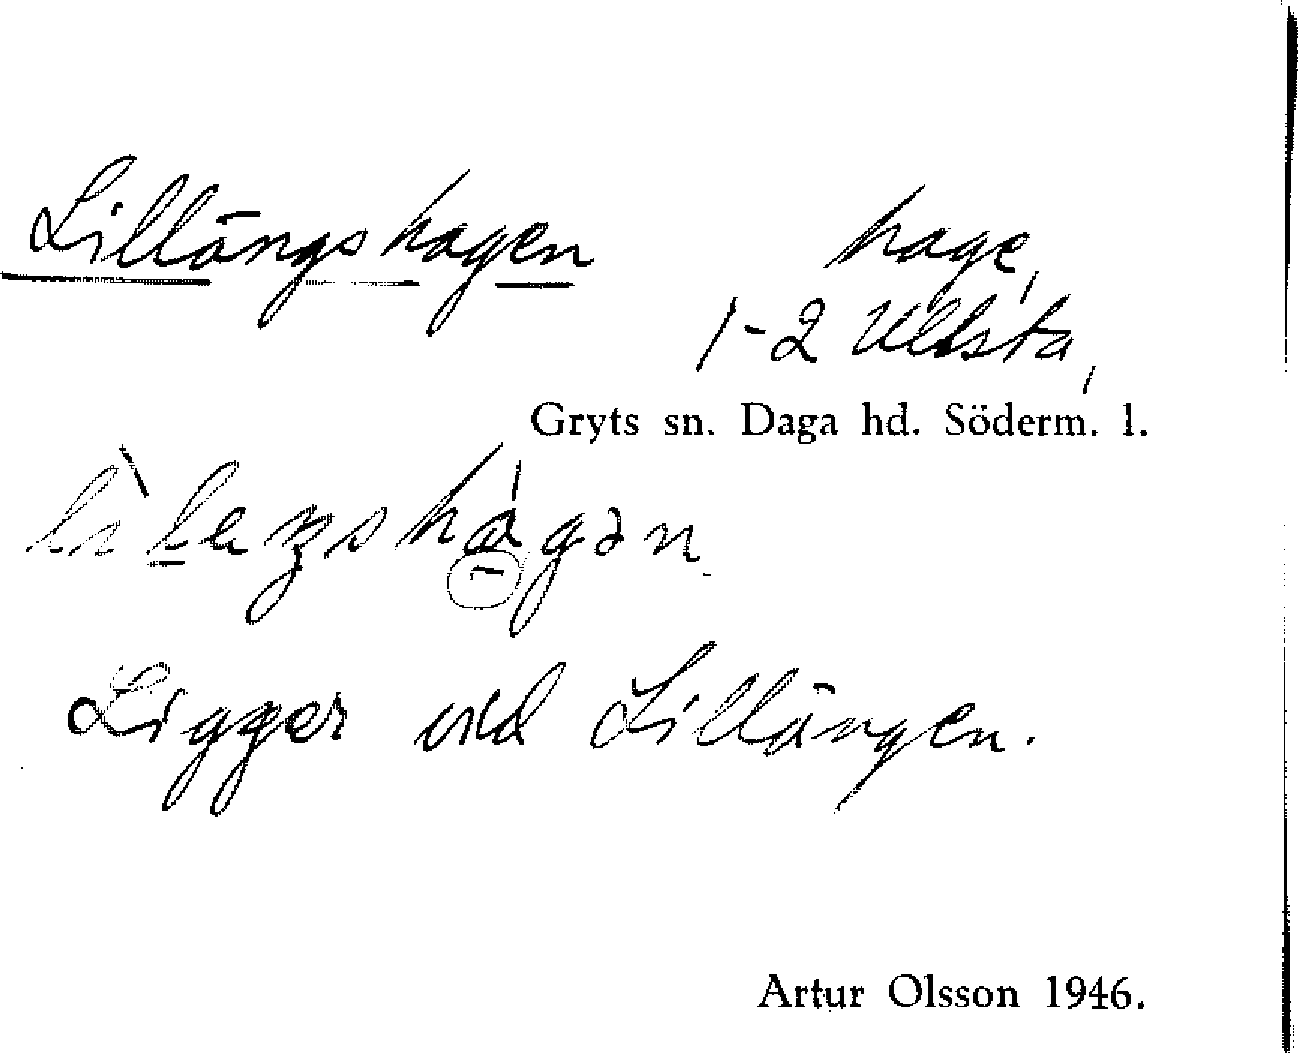 Lillängshagen hage,
1-2 Ullsta,
Gryts sn. Daga hd. Söderm. l.
Ligger vid Lillängen.
Artur Olsson 1946.